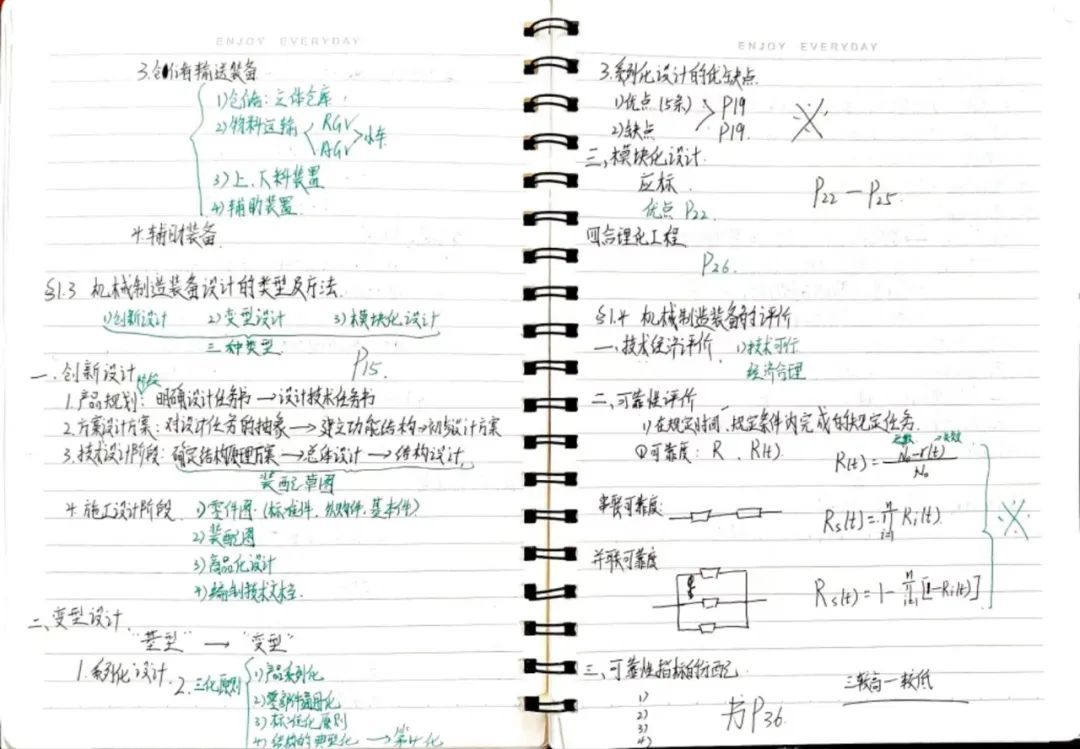 ENJOY EVERYDAY
3.仓储输送装备
1)仓储：立体仓库
2)物料运输 RGV 小车
AGV
3)上、下料装置
4)辅助装置
4.辅助装备
§1.3 机械制造装备设计的类型及方法
1)创新设计 2)变型设计 3)模块化设计
三种类型
P15.
一、创新设计
阶段
1.产品规划：明确设计任务书→设计技术任务书
2.方案设计方案：对设计任务的抽象→建立功能结构→初步设计方案
3.技术设计阶段：确定结构原理方案→总体设计→结构设计
装配草图
4.施工设计阶段 1)零件图（标准件、外购件、基本件）
2)装配图
3)商品化设计
4)编制技术文档
二、变型设计
"基型" → "变型"
1.系列化设计 2.三化原则 1)产品系列化
2)零部件通用化
3)标准化原则
4)结构的典型化 → 第4化
ENJOY EVERYDAY
3.系列化设计的优缺点
1)优点（5条） P19
2)缺点 P19
三、模块化设计
应标
P22—P25
优点 P22
四合理化工程
P26
§1.4 机械制造装备的评价
一、技术经济评价 1)技术可行
经济合理
二、可靠性评价
1)在规定时间、规定条件内完成规定任务
①可靠度：R、R(t) R(t)=N₀-r(t)/N₀
串联可靠度： Rs(t)=∏ⁿᵢ₌₁Ri(t)
并联可靠度 Rs(t)=1-∏ⁿᵢ₌₁[1-Ri(t)]
三、可靠性指标的分配 三较高一较低
1)
2) 书P36
3)
4)